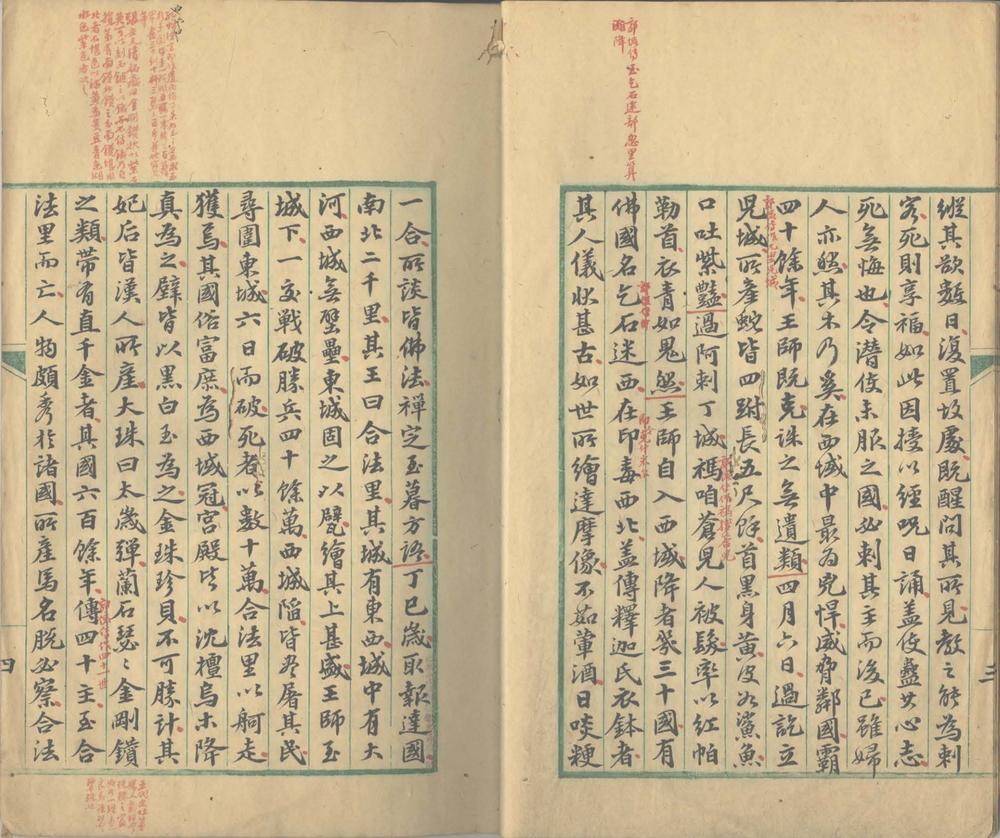 郭侃傳至乞石迷部忽里算
灘降
縱其欲數日復置故處既醒問其所見教之能為刺
客死則享福如此因授以經呪日誦蓋使蠱其心志
死無悔也令潛使未服之國必刺其主而後已雖婦
人亦然其木乃奚在西域中最為兇悍威脅鄰國霸
四十餘年王師既克誅之無遺類四月六日過訖立
兒城所產蛇皆四跗長五尺餘首黑身黃皮如鯊魚
口吐紫豔過阿剌丁城禡咱蒼兒人被髮率以紅帕
勒首衣青如鬼然王師自入西域降者幾三十國有
佛國名乞石迷西在印毒西北蓋傳釋迦氏衣鉢者
其人儀狀甚古如世所繪達摩像不茹葷酒日啖粳
三
一合所談皆佛法禪定至暮方語丁巳歲取報達國
南北二千里其王曰合法里其城有東西城中有大
河西城無壁壘東城固之以甓繪其上甚盛王師至
城下一交戰破勝兵四十餘萬西城陷皆盡屠其民
尋圍東城六日而破死者以數十萬合法里以舸走
獲焉其國俗富庶為西域冠宮殿皆以沈檀烏木降
真為之壁皆以黑白玉為之金珠珍貝不可勝計其
妃后皆漢人所產大珠曰太歲彈蘭石瑟〻金剛鑽
之類帶有直千金者其國六百餘年傳四十主至合
郭侃傳作四十二世
法里而亡人物頗秀於諸國所產馬名脫必察合法
四